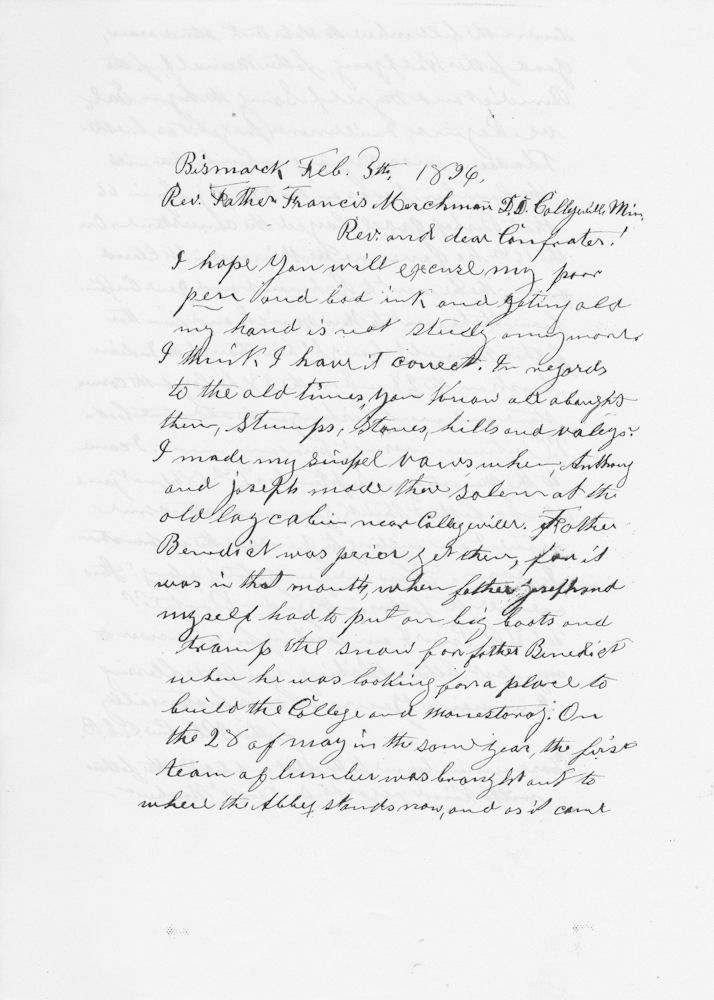 Bismarck Feb. 3th, 1896,
Rev. Father Francis Merchman D.D. Collegeville Min.
Rev. and dear Confrater!
I hope you will excuse my poor
pen and bad ink and geting old
my hand is not study any more
I think I have it correct. In regards
to the old times, you know all about
them, Stumps, Stones, hills and valeys.
I made my simpel vows when, Anthony
and joseph made there solem at the
old log cabin near Collegeville. Father
Benedict was prior yet then, for it
was in that month, when father joseph and
myself had to put on big boots and
tramp the snow for father Benedict
when he was looking for a place to
build the College and monestory. On
the 28 of may in the same year, the first
team of lumber was brought out to
where the Abbey stands now, and as it came